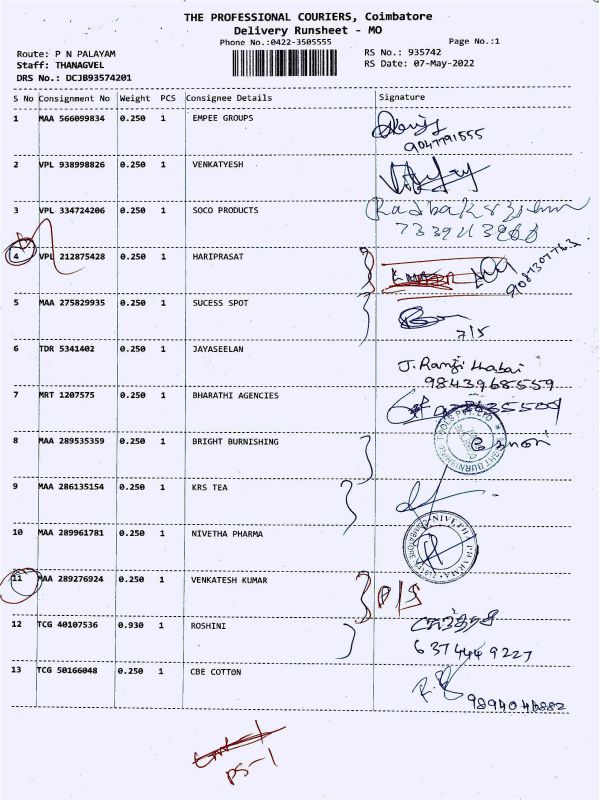 THE PROFESSIONAL COURIERS, Coimbatore
Delivery Runsheet - MO
Phone No.:0422-3505555 Page No.:1
Route: P N PALAYAM RS No.: 935742
Staff: THANAGVEL RS Date: 07-May-2022
DRS No.: DCJB93574201
S No Consignment No Weight PCS Consignee Details Signature
1 MAA 566099834 0.250 1 EMPEE GROUPS
9047791555
2 VPL 938998826 0.250 1 VENKATYESH
3 VPL 334724206 0.250 1 SOCO PRODUCTS
4 VPL 212875428 0.250 1 HARIPRASAT
9087307763
5 MAA 275829935 0.250 1 SUCESS SPOT
7/5
6 TDR 5341402 0.250 1 JAYASEELAN
9843968559
7 MRT 1207575 0.250 1 BHARATHI AGENCIES
8 MAA 289535359 0.250 1 BRIGHT BURNISHING
9 MAA 286135154 0.250 1 KRS TEA
10 MAA 289961781 0.250 1 NIVETHA PHARMA
11 MAA 289276924 0.250 1 VENKATESH KUMAR
12 TCG 40107536 0.930 1 ROSHINI
6374449227
13 TCG 50166048 0.250 1 CBE COTTON
9894046882
PS-1